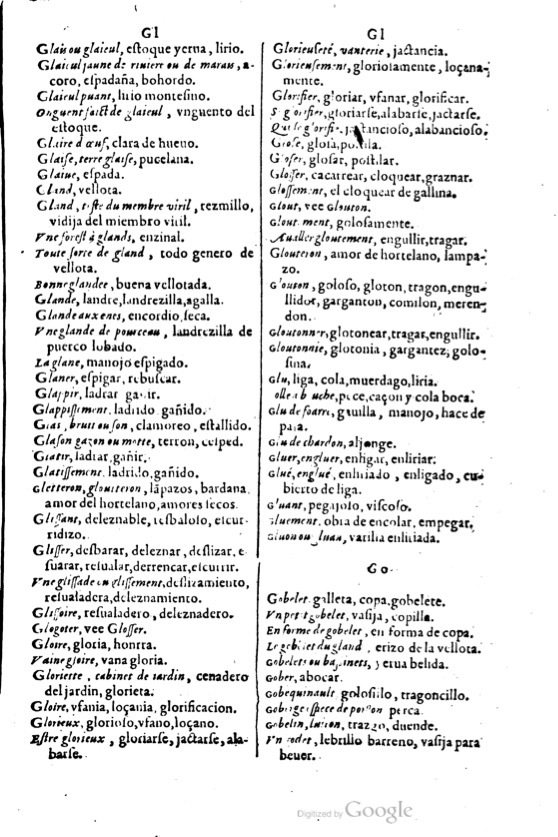 Gl
Glais ou glaieul, estoque yerua, lirio.
Glaieul jaune de riuiere ou de marais, a-
coro, espadaña, bohordo.
Glaieul puant, lirio montesino.
Onguent faict de glaieul, vnguento del
estoque.
Glaire d'œuf, clara de hueuo.
Glaise, terre glaise, pucelana.
Glaiue, espada.
Gland, vellota.
Gland, teste du membre viril, rezmillo,
vidija del miembro viril.
Vne forest à glands, enzinal.
Toute sorte de gland, todo genero de
vellota.
Bonne glandee, buena vellotada.
Glande, landre, landrezilla, agalla.
Glande aux enes, encordio, seca.
Vne glande de pourceau, landrezilla de
puerco lobado.
La glane, manojo espigado.
Glaner, espigar, rebuscar.
Glappir, ladrar gañir.
Glappissement, ladrido gañido.
Glas, bruit ou son, clamoreo, estallido.
Glason gazon ou motte, terron, cesped.
Glatir, ladrar, gañir.
Glatissement, ladrido, gañido.
Gletteron, glouteron, lápazos, bardana
amor del hortelano, amores secos.
Glissant, deleznable, resbaloso, escur-
ridizo.
Glisser, desbarar, deleznar, deslizar, e
suarar, resualar, derrencar, escurrir.
Vne glissade ou glissement, deslizamiento,
resualadera, deleznamiento.
Glissoire, resualadero, deleznadero.
Glogoter, vee Glosser.
Gloire, gloria, honrra.
Vaine gloire, vana gloria.
Gloriette, cabinet de iardin, cenadero
del jardin, glorieta.
Gloire, vfania, loçania, glorificacion.
Glorieux, glorioso, vfano, loçano.
Estre glorieux, gloriarse, jactarse, ala-
barse.
Gl
Glorieuseté, vanterie, jactancia.
Glorieusement, gloriosamente, loçana-
mente.
Glorifier, gloriar, vfanar, glorificar.
S glorifier, gloriarse, alabarse, jactarse.
Qui se glorifie, jactancioso, alabancioso.
Glose, glosa, postila.
Gloser, glosar, postilar.
Glosser, cacarrear, cloquear, graznar.
Glossement, el cloquear de gallina.
Glout, vee Glouton.
Gloutement, golosamente.
Aualler gloutement, engullir, tragar.
Glouteron, amor de hortelano, lampa-
zo.
Glouton, goloso, gloton, tragon, engu-
llidor, garganton, comilon, meren-
don.
Gloutonner, glotonear, tragar, engullir.
Gloutonnie, glotonia, gargantez, golo-
sina.
Glu, liga, cola, muerdago, liria.
colle a bouche, pece, caçon y cola boca.
Glu de foarre, gauilla, manojo, hace de
paja.
Glu de chardon, aljonge.
Gluer, engluer, enligar, enliriar.
Glué, englué, enliriado, enligado, cu-
bierto de liga.
Gluant, pegajoso, viscoso.
Gluement, obra de encolar, empegar.
Gluon ou gluau, varilla enliriada.
Go
Gobelet galleta, copa, gobelete.
Vn petit gobelet, vasija, copilla.
En forme de gobelet, en forma de copa.
Le gobelet du gland, erizo de la vellota.
Gobelets ou bassinets, yerua belida.
Gober, abocar.
Gobequinault golosillo, tragoncillo.
Goberge espece de poisson perca.
Gobelin, luiton, trazgo, duende.
Vn godet, lebrillo barreno, vasija para
beuer.
Digitized by Google